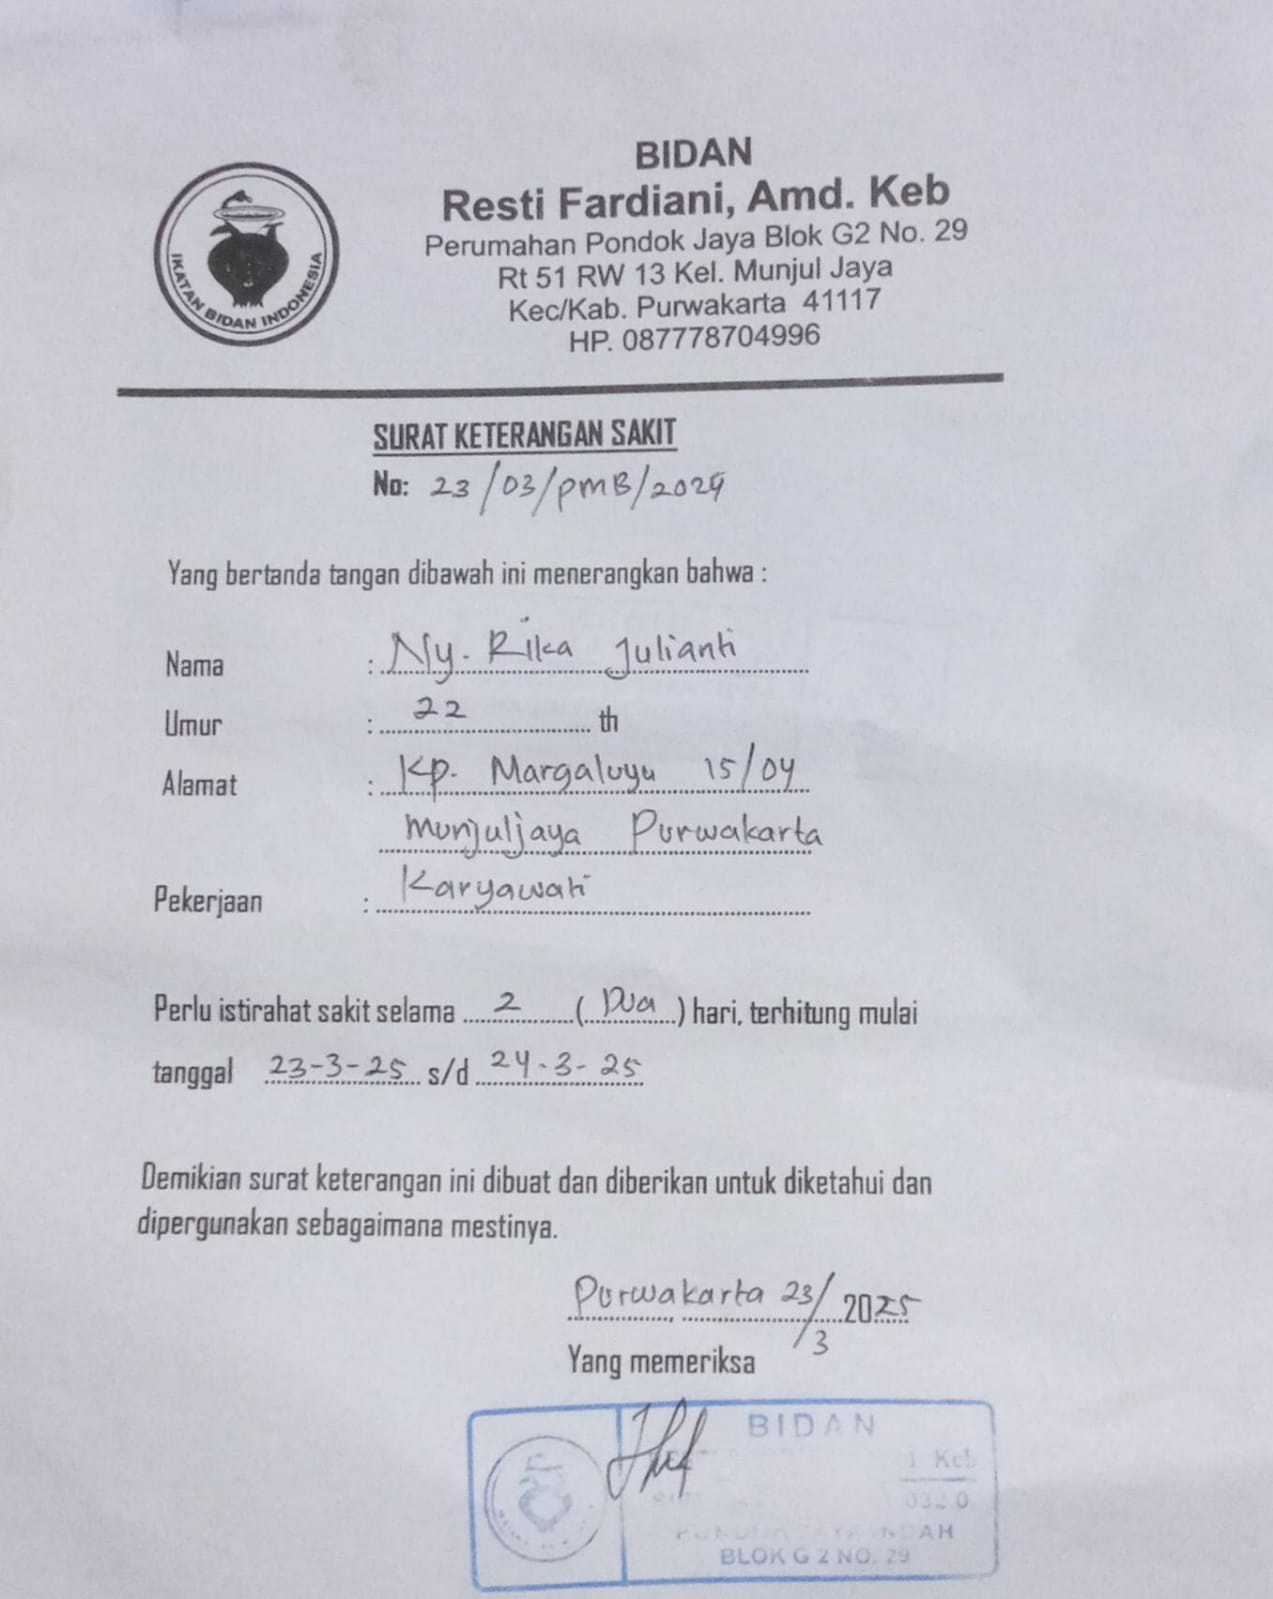 BIDAN
Resti Fardiani, Amd. Keb
Perumahan Pondok Jaya Blok G2 No. 29
Rt 51 RW 13 Kel. Munjul Jaya
Kec/Kab. Purwakarta 41117
HP. 087778704996
IKATAN BIDAN INDONESIA
SURAT KETERANGAN SAKIT
No: 23/03/PMB/2029
Yang bertanda tangan dibawah ini menerangkan bahwa :
Nama : Ny. Rika Julianti
Umur : 22 th
Alamat : Kp. Margaluyu 15/04
Munjuljaya Purwakarta
Pekerjaan : Karyawati
Perlu istirahat sakit selama 2 ( Dua ) hari, terhitung mulai
tanggal 23-3-25 s/d 24-3-25
Demikian surat keterangan ini dibuat dan diberikan untuk diketahui dan
dipergunakan sebagaimana mestinya.
Purwakarta, 23/3 2025
Yang memeriksa
BIDAN
Keb
BLOK G 2 NO. 29